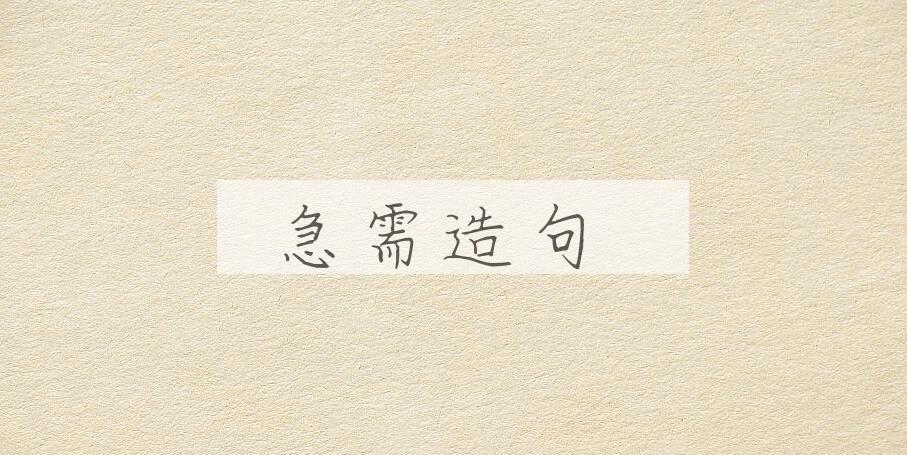 急需造句